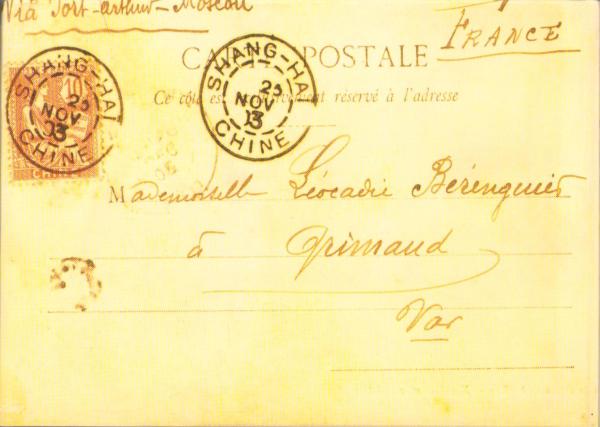 Via Port-Arthur-Moscou
FRANCE
CA POSTALE
Ce côté es vement réservé à l'adresse
SHANG-HAI
23
NOV
03
CHINE
SHANG-HAI
23
NOV
03
CHINE
10
CHINE
Mademoiselle Léocadie Bérenguier
à Grimaud
Var